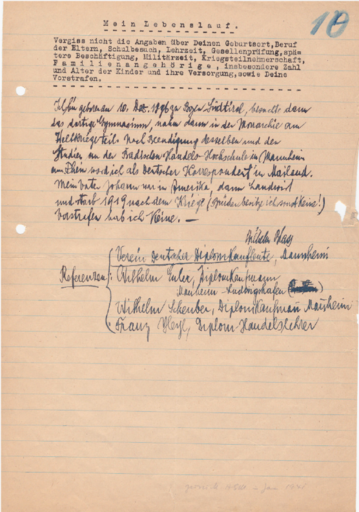 10
Mein Lebenslauf.
Vergiss nicht die Angaben über Deinen Geburtsort, Beruf
der Eltern, Schulbesuch, Lehrzeit, Gesellenprüfung, spä=
tere Beschäftigung, Militärzeit, Kriegsteilnehmerschaft,
Familienangehörige, insbesondere Zahl
und Alter der Kinder und ihre Versorgung, sowie Deine
Vorstrafen.
Ich bin geboren am 10. Dez. 1896 zu Südtirol, besuchte dann
das dortige Gymnasium, nahm dann in der Monarchie am
Weltkriege teil. Nach Beendigung desselben und der
Studien an der Badischen Handels-Hochschule in Mannheim
am Rhein ward ich als deutscher Korrespondent in Mailand.
Mein Vater Johann war in Amerika, dann Landwirt
und starb 1919 nach dem Kriege
Vorstrafen habe ich Keine. —
Verein Deutscher Diplomkaufleute, Mannheim
Referenzen: Wilhelm Diplomkaufmann
Mannheim-Ludwigshafen
Wilhelm Scheuber, Diplomkaufmann Mannheim
Franz Diplom Handelslehrer